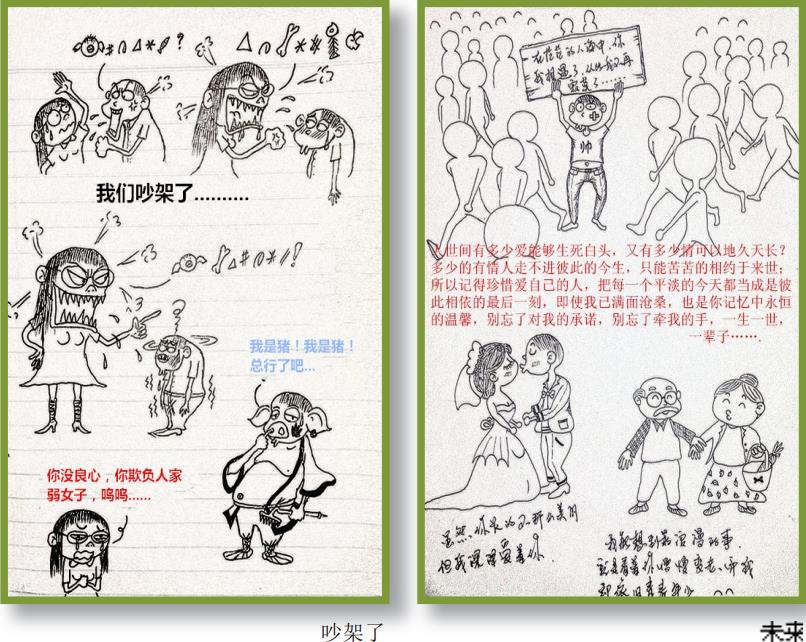 我们吵架了..........
我是猪！我是猪！
总行了吧...
你没良心，你欺负人家
弱女子，呜呜......
吵架了
在茫茫的人海中，你
我相遇了，从此我不再
孤单了......
帅
人世间有多少爱能够生死白头，又有多少情可以地久天长？
多少的有情人走不进彼此的今生，只能苦苦的相约于来世；
所以记得珍惜爱自己的人，把每一个平淡的今天都当成是彼
此相依的最后一刻，即使我已满面沧桑，也是你记忆中永恒
的温馨，别忘了对我的承诺，别忘了牵我的手，一生一世，
一辈子…….
虽然，你长的不那么美丽
但我深深爱着你.
我能想到最浪漫的事.
就是看着你慢慢变老、
未来